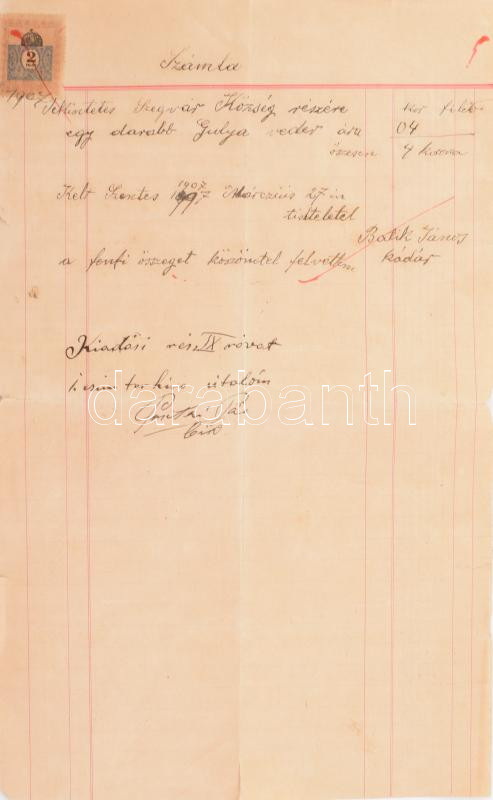 2
Számla
1907
Tekintetes Szegvár Község részére kor fillér
egy darabb Gulya veder ára 04
összesen 4 korona
Kelt Szentes 1907 Márczius 27 én
tisztelettel
Balik János
a fenti összeget köszönettel felvettem kádár
Kiadási rész IX rovat
utalom
Pál
darabanth